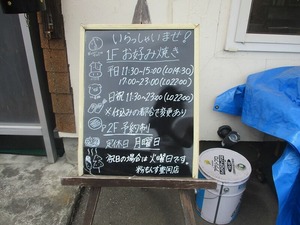 いらっしゃいませ!
1F お好み焼き
平日 11:30-15:00(LO14:30)
17:00-23:00(LO22:00)
日祝 11:30~23:00(LO22:00)
※仕込みの都合で変更あり
2F 予約制
定休日 月曜日
祝日の場合は火曜日です。